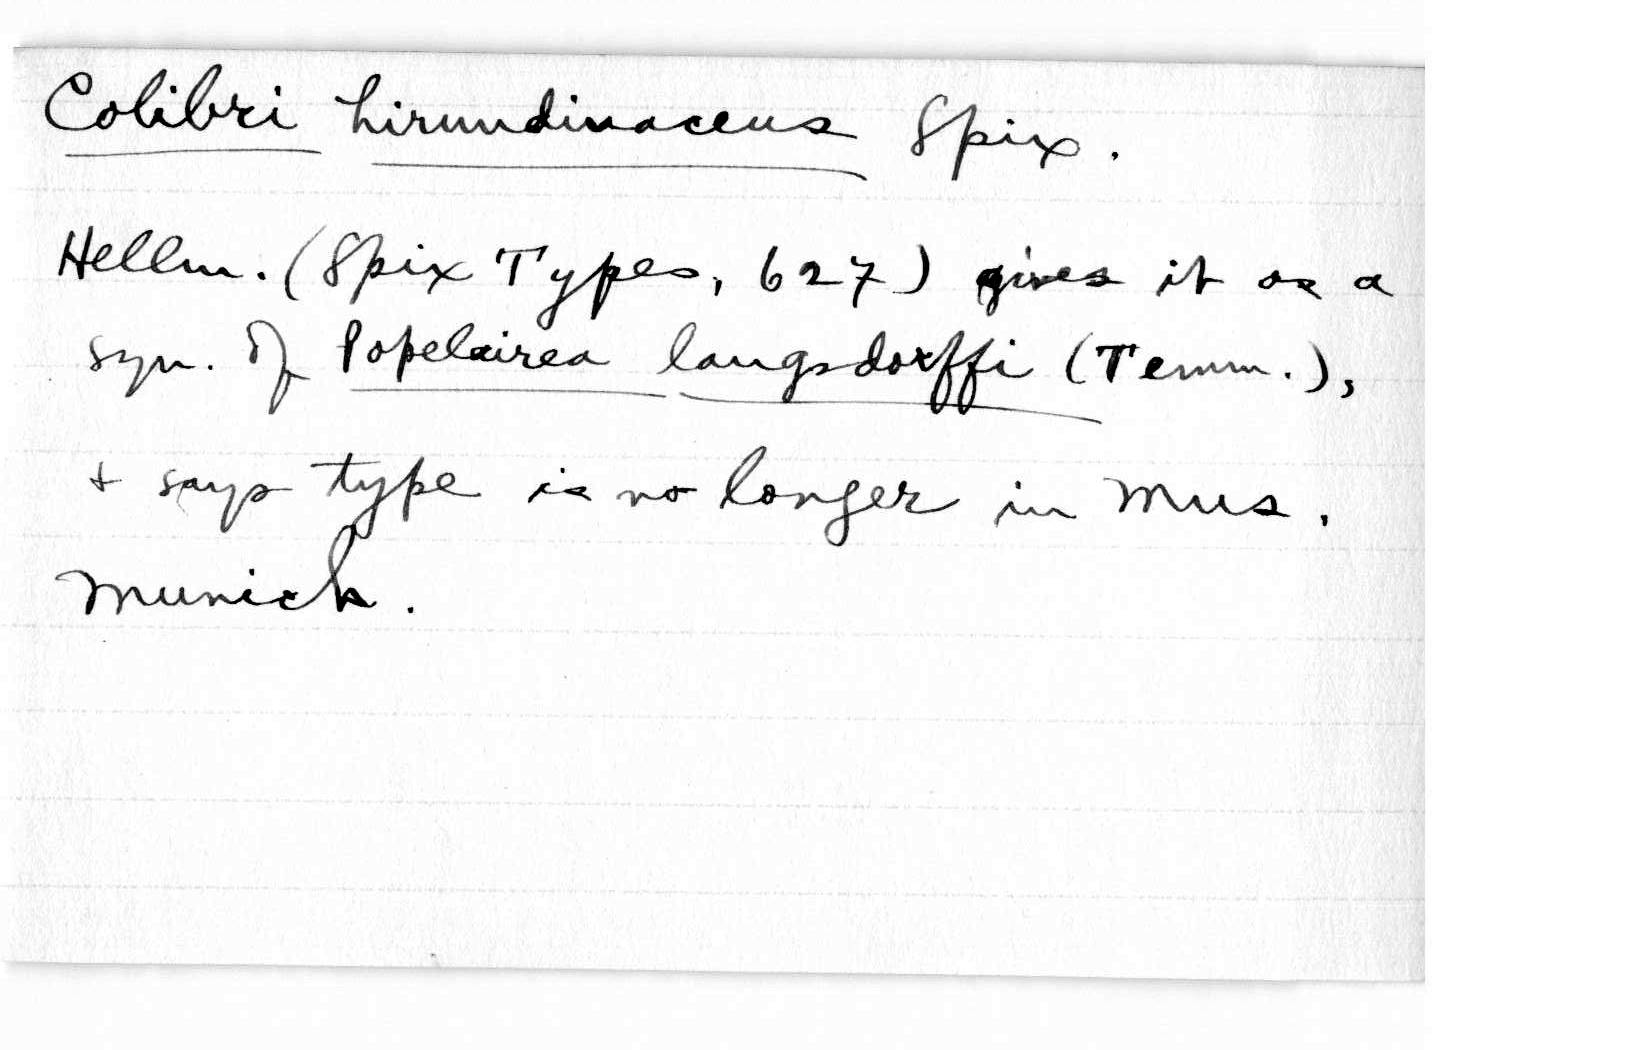 Colibri hirundinaceus Spix.
Hellm. (Spix Types, 627) gives it as a
syn. of Popelairea langsdorffi (Temm.),
+ says type is no longer in Mus.
Munich.